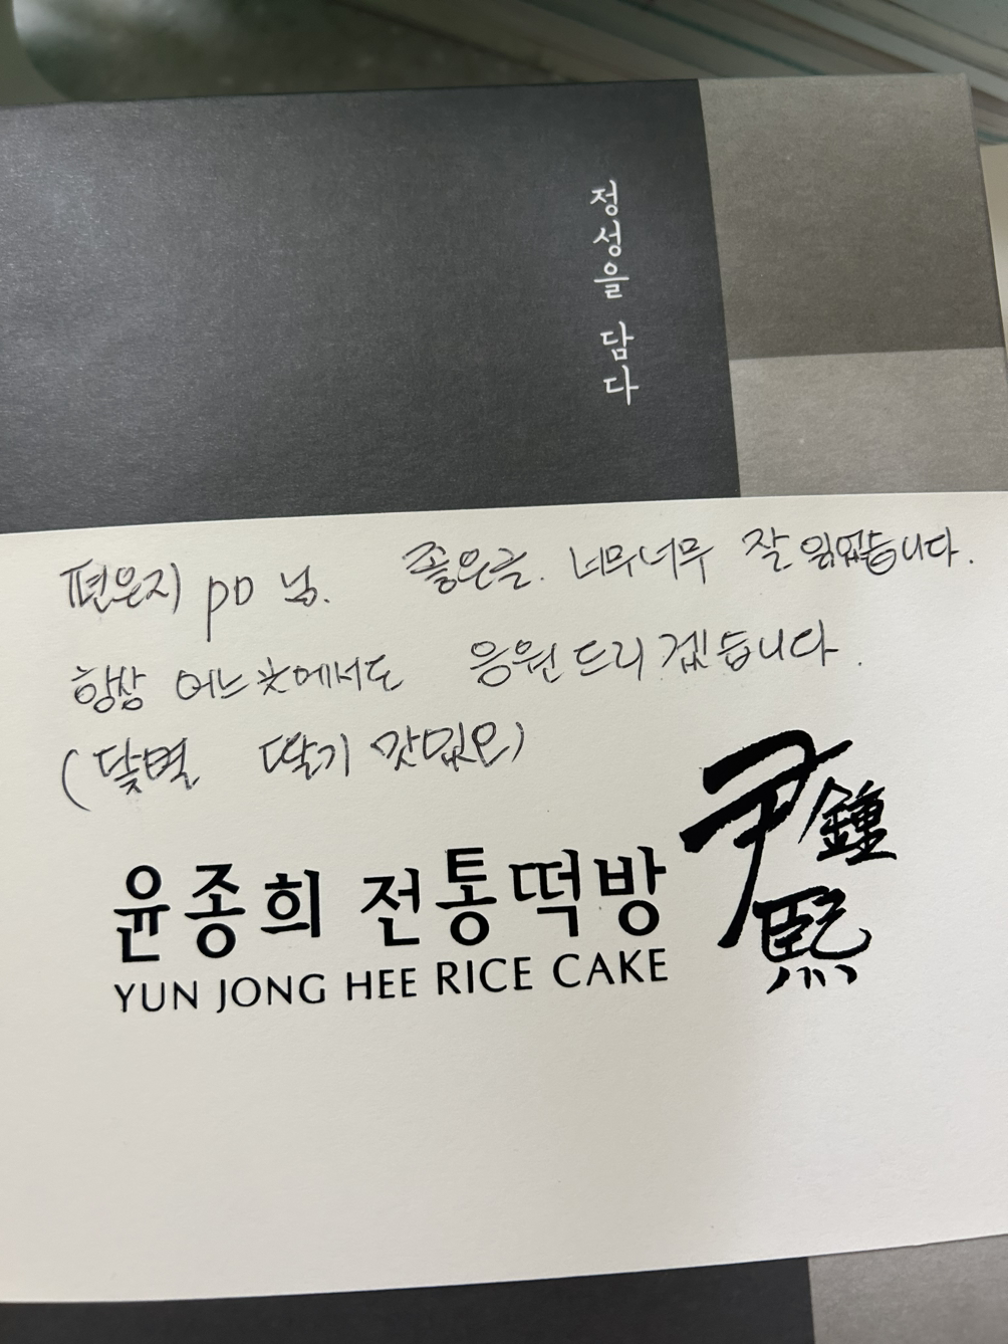 정성을 담다
편은지 PD 님. 좋은글. 너무너무 잘 읽었습니다.
항상 어느 곳에서도 응원 드리겠습니다.
(달별 딸기
윤종희 전통떡방
YUN JONG HEE RICE CAKE
尹鍾熙